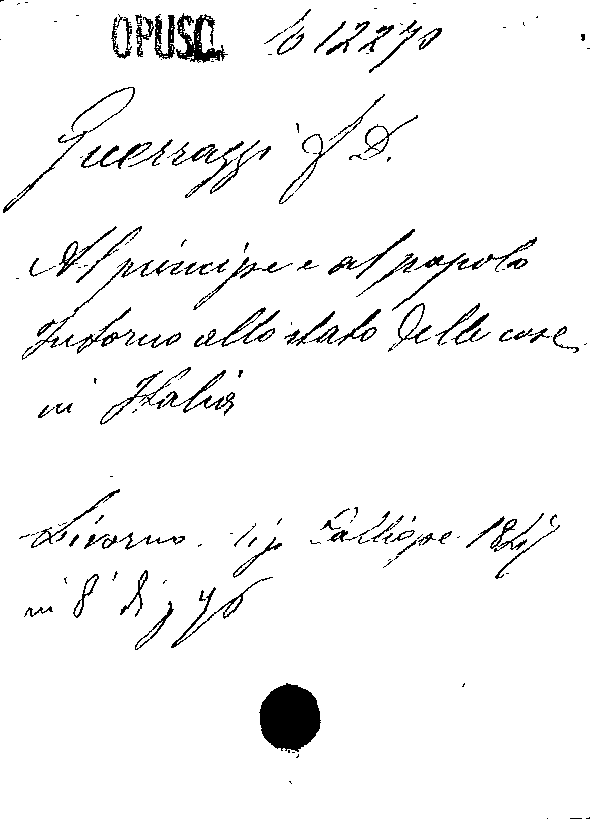 OPUSC. 12270
Guerrazzi F D.
Al principe e al popolo
Intorno allo stato delle cose
in Italia
Livorno. tip 1847
in 8° di p